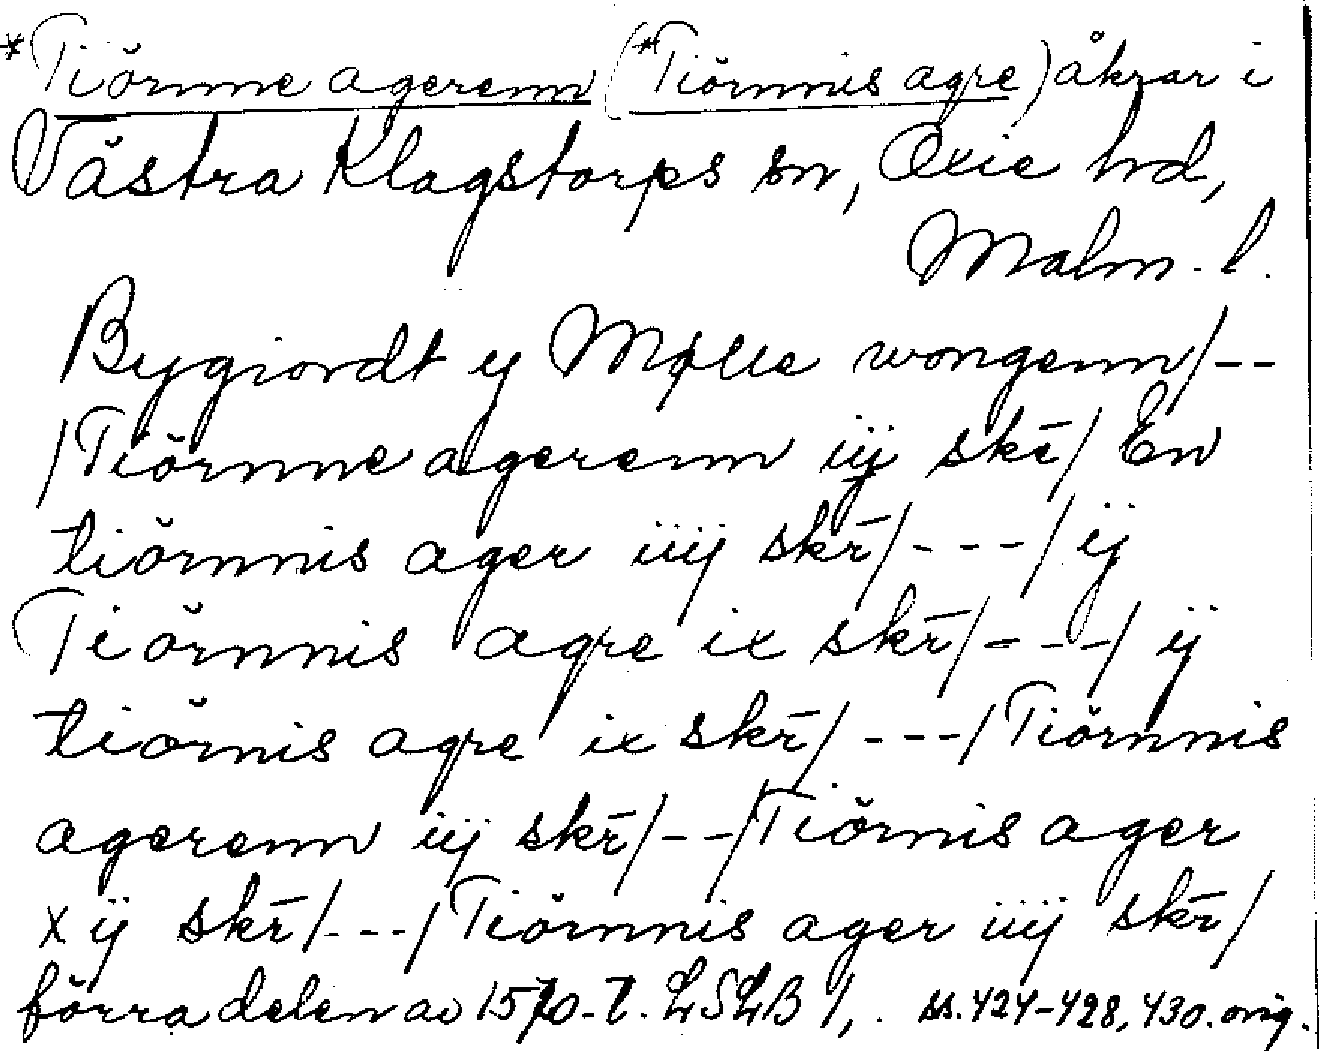 *Tiörnne agerenn (*Tiörnnis agre) åkrar i
Västra Klagstorps sn, Oxie hd,
Malm. l.
Bygiordt ÿ Mølle wongenn/--
/Tiörnne agerenn iij skr̄/ En
tiörnnis ager iiij skr̄/---/ ij
Tiörnnis agre ix skr̄/---/ ij
tiörnis agre ix skr̄/---/Tiörnnis
agerenn iij skr̄/--/Tiörnis ager
xij skr̄/---/Tiörnnis ager iiij skr̄/
förra delen av 1570-t. LSLB 1, ss. 424-428, 430. orig.